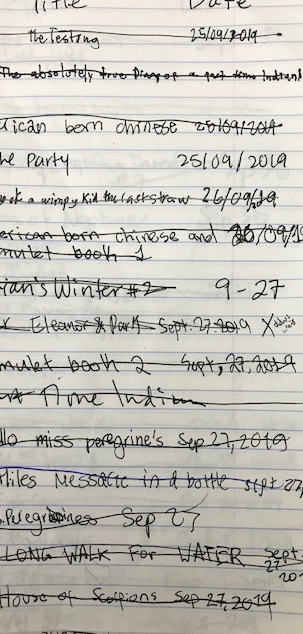 Title Date
the Testing 25/09/2019
The absolutely true Diary of a part time Indian
rican born chinese 25/09/2019
he Party 25/09/2019
of a wimpy Kid the last straw 26/09/19
erican born chinese and 26/09/19
mulet book 1
rian's Winter #2 9-27
Eleanor & Park Sept. 27. 2019 X
mulet booth 2 Sept, 27, 2019
Time Indian
llo miss peregrine's Sep 27, 2019
Miles Message in a bottle sept 27,
Sep 27
LONG WALK For WATER Sept.
27
20
House of Scorpions Sep 27, 2019